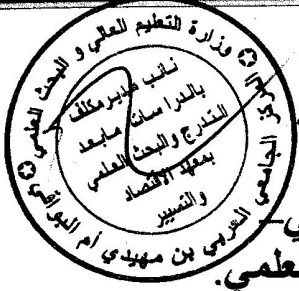 وزارة التعليم العالي و البحث العلمي
المركز الجامعي العربي بن مهيدي أم البواقي
نائب مدير مكلف
بالدراسات مابعد
التدرج والبحث العلمي
بمعهد الاقتصاد
والتسيير
ـي-
علمي.